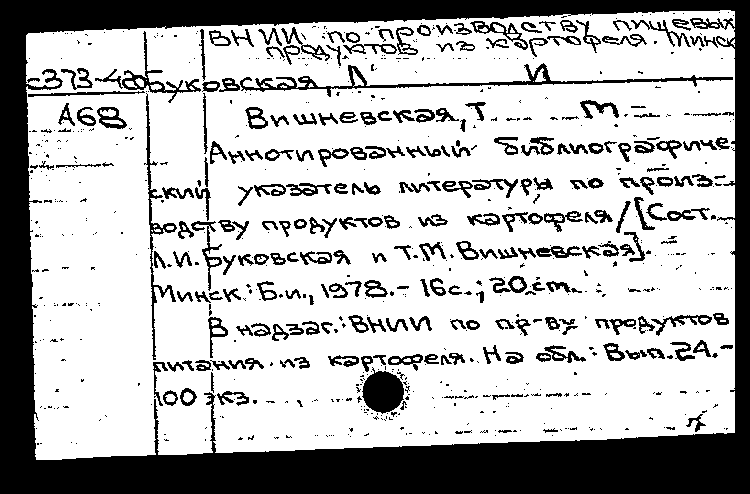 ВНИИ по производству пищевых
продуктов из картофеля. Минск
Буковская, Л И
А68 Вишневская, Т. М.
Аннотированный библиографиче-
ский указатель литературы по произ-
водству продуктов из картофеля / [Сост.
Л.И. Буковская и Т.М. Вишневская].
Минск: Б.и., 1978. - 16 с.; 20 cm.
В надзаг.: ВНИИ по пр-ву продуктов
питания из картофеля. На обл.: Вып. 24. -
100 экз.